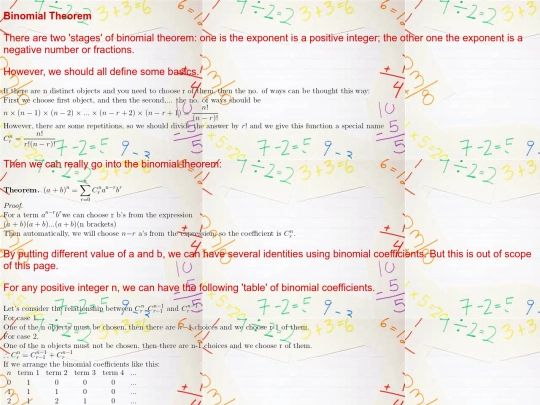 Binomial Theorem
There are two 'stages' of binomial theorem: one is the exponent is a positive integer; the other one the exponent is a
negative number or fractions.
However, we should all define some basics.
If there are n distinct objects and you need to choose r of them, then the no. of ways can be thought this way:
First we choose first object, and then the second,... the no. of ways should be
n × (n − 1) × (n − 2) × ... × (n − r + 2) × (n − r + 1) = n!/(n−r)!
However, there are some repetitions, so we should divide the answer by r! and we give this function a special name
C_r^n = n!/(r!(n−r)!)
Then we can really go into the binomial theorem:
Theorem. (a + b)^n = ∑_{r=0}^n C_r^n a^{n−r} b^r
Proof.
For a term a^{n−r}b^r we can choose r b's from the expression
(a + b)(a + b)...(a + b)(n brackets)
Then automatically, we will choose n−r a's from the expression, so the coefficient is C_r^n.
By putting different value of a and b, we can have several identities using binomial coefficients. But this is out of scope
of this page.
For any positive integer n, we can have the following 'table' of binomial coefficients.
Let's consider the relationship between C_r^n, C_{r−1}^{n−1} and C_r^{n−1}
For case 1,
One of the n objects must be chosen, then there are n-1 choices and we choose r-1 of them.
For case 2,
One of the n objects must not be chosen, then there are n-1 choices and we choose r of them.
∴ C_r^n = C_{r−1}^{n−1} + C_r^{n−1}
If we arrange the binomial coefficients like this:
n term 1 term 2 term 3 term 4 ...
0 1 0 0 0 ...
1 1 1 0 0 ...
2 1 2 1 0 ...